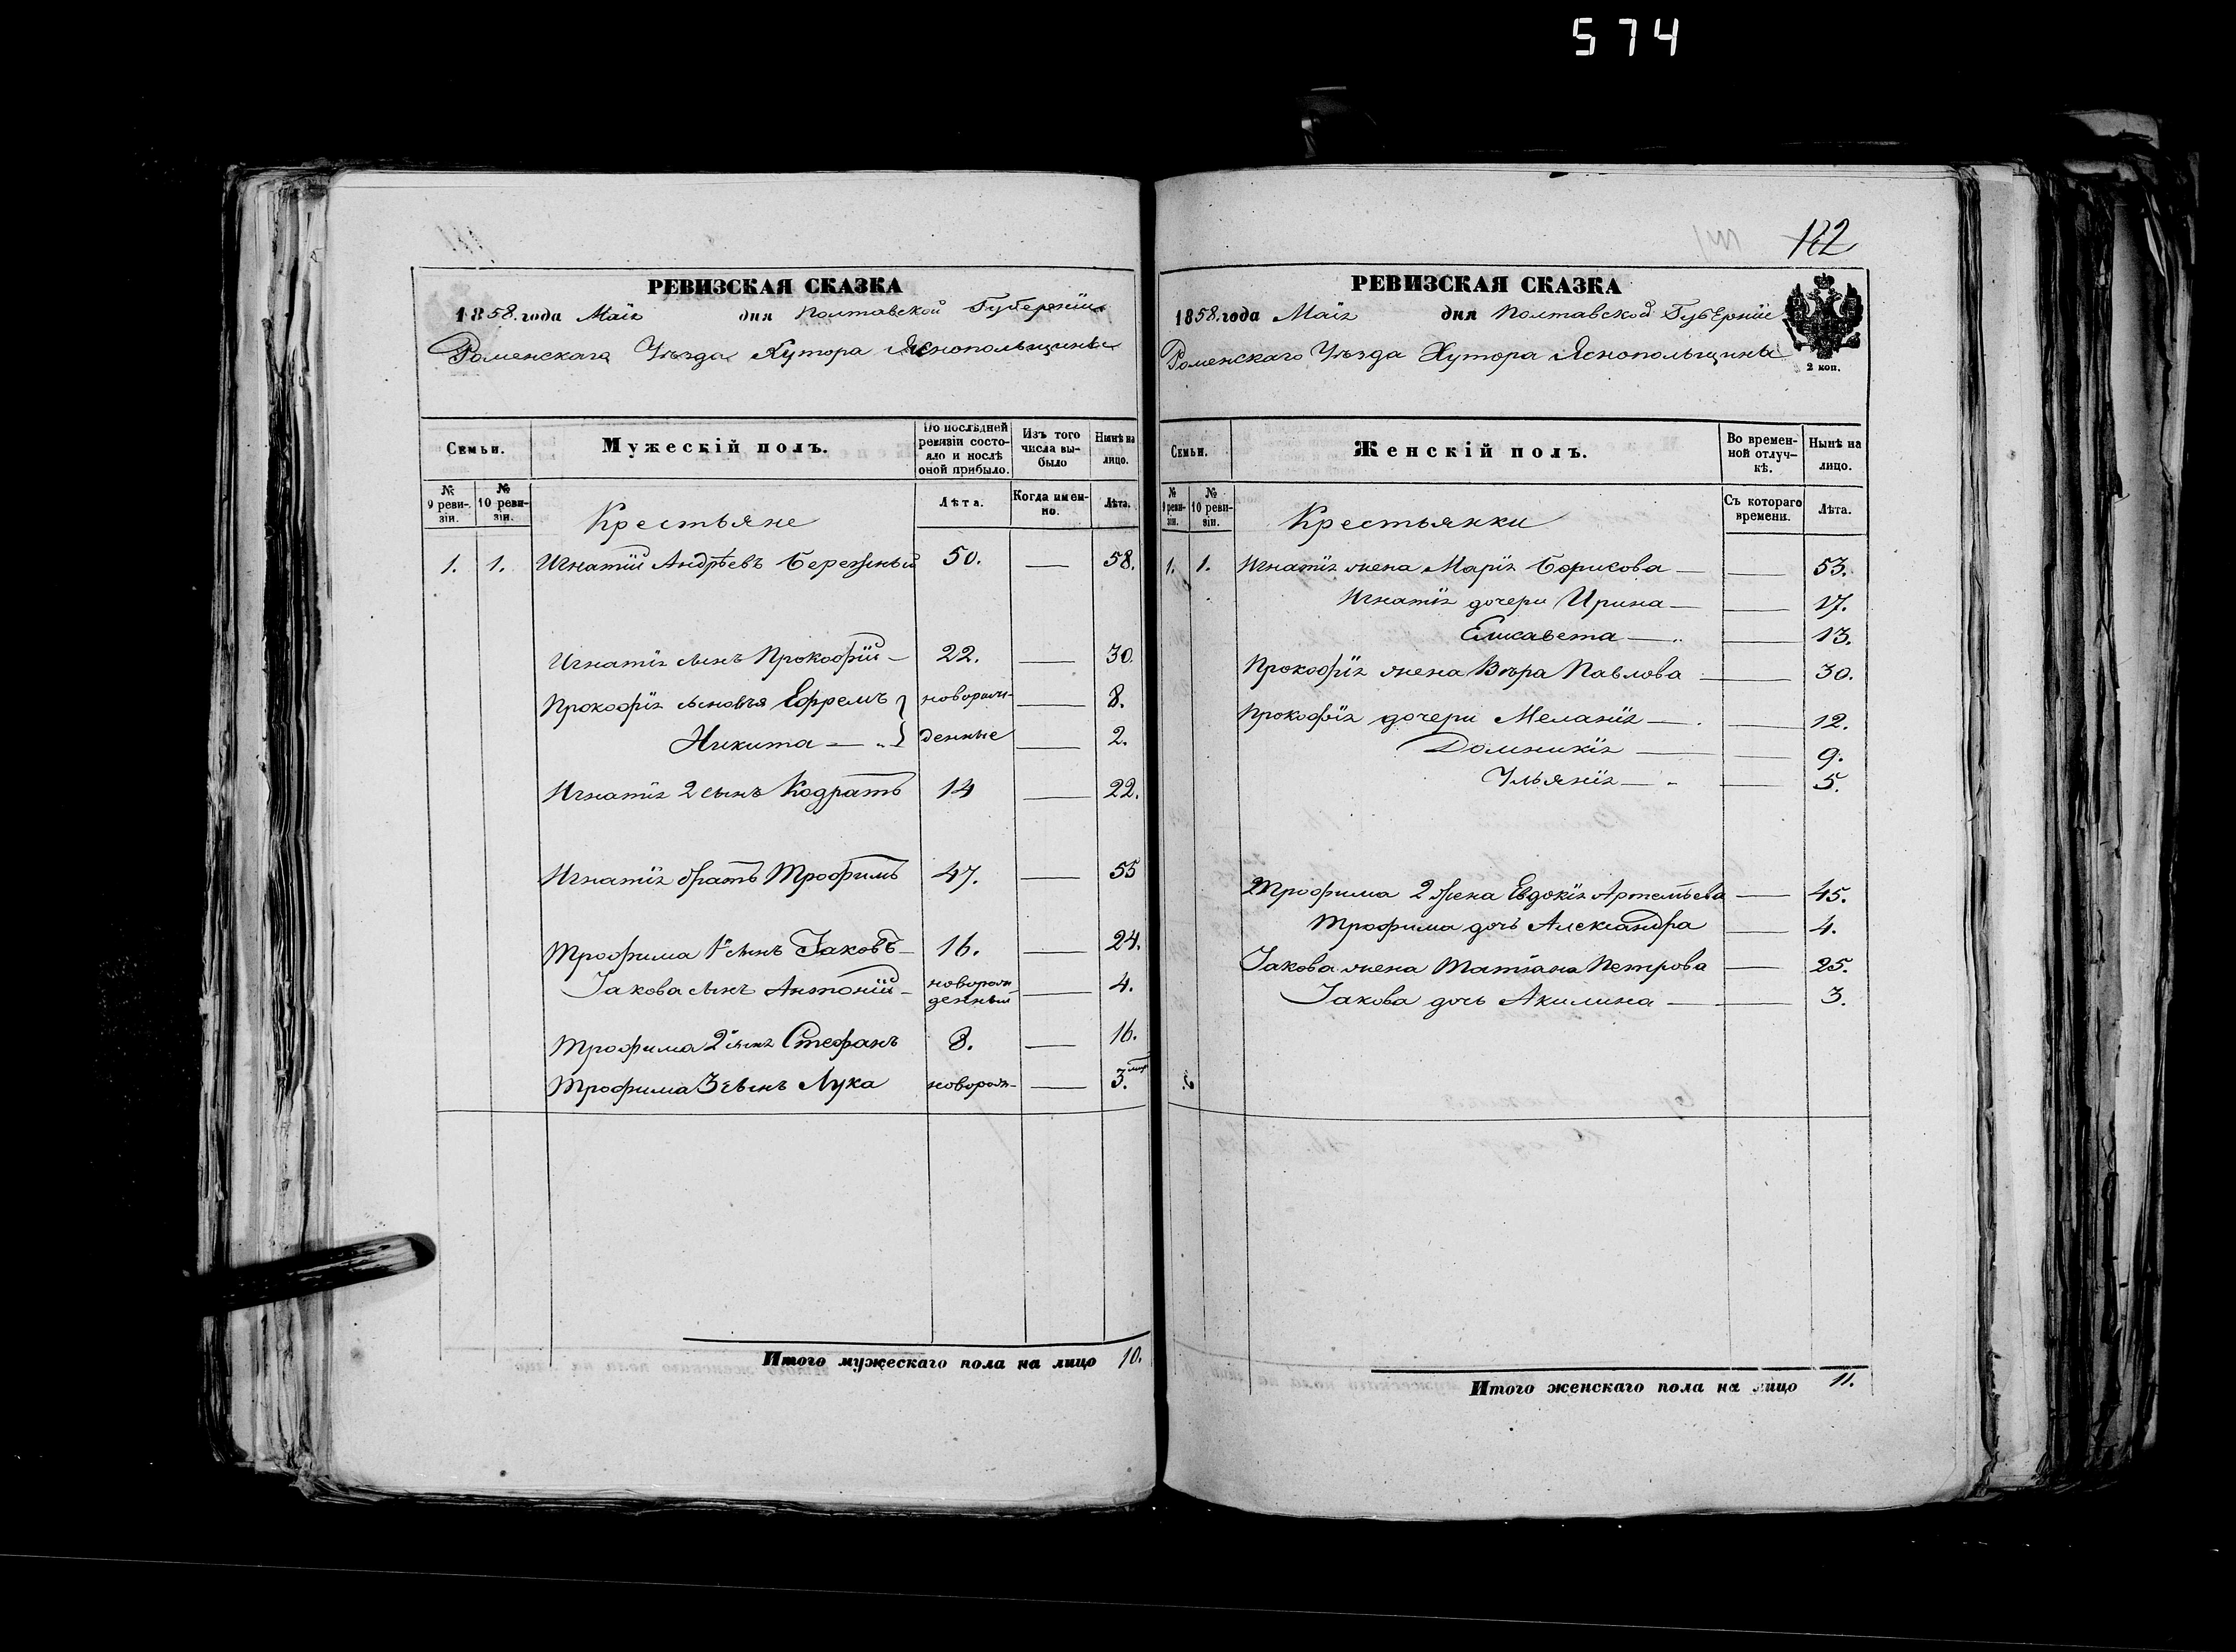 574
РЕВИЗСКАЯ СКАЗКА
1858. года Маія дня Полтавской Губерніи
Роменскаго Уѣзда Хутора Яснопольщины
Семьи.
Мужескій полъ.
По послѣдней ревизіи состояло и послѣ оной прибыло.
Изъ того числа выбыло
Нынѣ на лицо.
№ 9 ревизіи.
№ 10 ревизіи.
Крестьяне
Лѣта.
Когда именно.
Лѣта.
1. 1. Игнатій Андрѣевъ Бережный 50. — 58.
Игнатія сынъ Прокофій — 22. — 30.
Прокофія сыновья Ефремъ } новорож- — 8.
Никита — „ } денные — 2.
Игнатія 2 сынъ Кодратъ 14 — 22.
Игнатія братъ Трофимъ 47. — 55
Трофима 1й сынъ Іаковъ — 16. — 24.
Іакова сынъ Антоній — новорожденный — 4.
Трофима 2й сынъ Стефанъ 8. — 16.
Трофима 3 сынъ Лука новорож- — 3.
Итого мужескаго пола на лицо 10.
122
РЕВИЗСКАЯ СКАЗКА
1858. года Маія дня Полтавской Губерніи
Роменскаго Уѣзда Хутора Яснопольщины
2 коп.
Семьи.
Женскій полъ.
Во временной отлучкѣ.
Нынѣ на лицо.
№ 9 ревизіи.
№ 10 ревизіи.
Крестьянки
Съ котораго времени.
Лѣта.
1. 1. Игнатія жена Марія Борисова — — 53.
Игнатія дочери Ирина — — 17.
Елисавета — „ — 13.
Прокофія жена Вѣра Павлова — 30.
Прокофія дочери Меланія — — 12.
Домникія — — 9.
Ульянія — „ — 5.
Трофима 2 жена Евдокія Артемьева — 45.
Трофима дочь Александра — 4.
Іакова жена Татіана Петрова — 25.
Іакова дочь Акилина — — 3.
Итого женскаго пола на лицо 11.